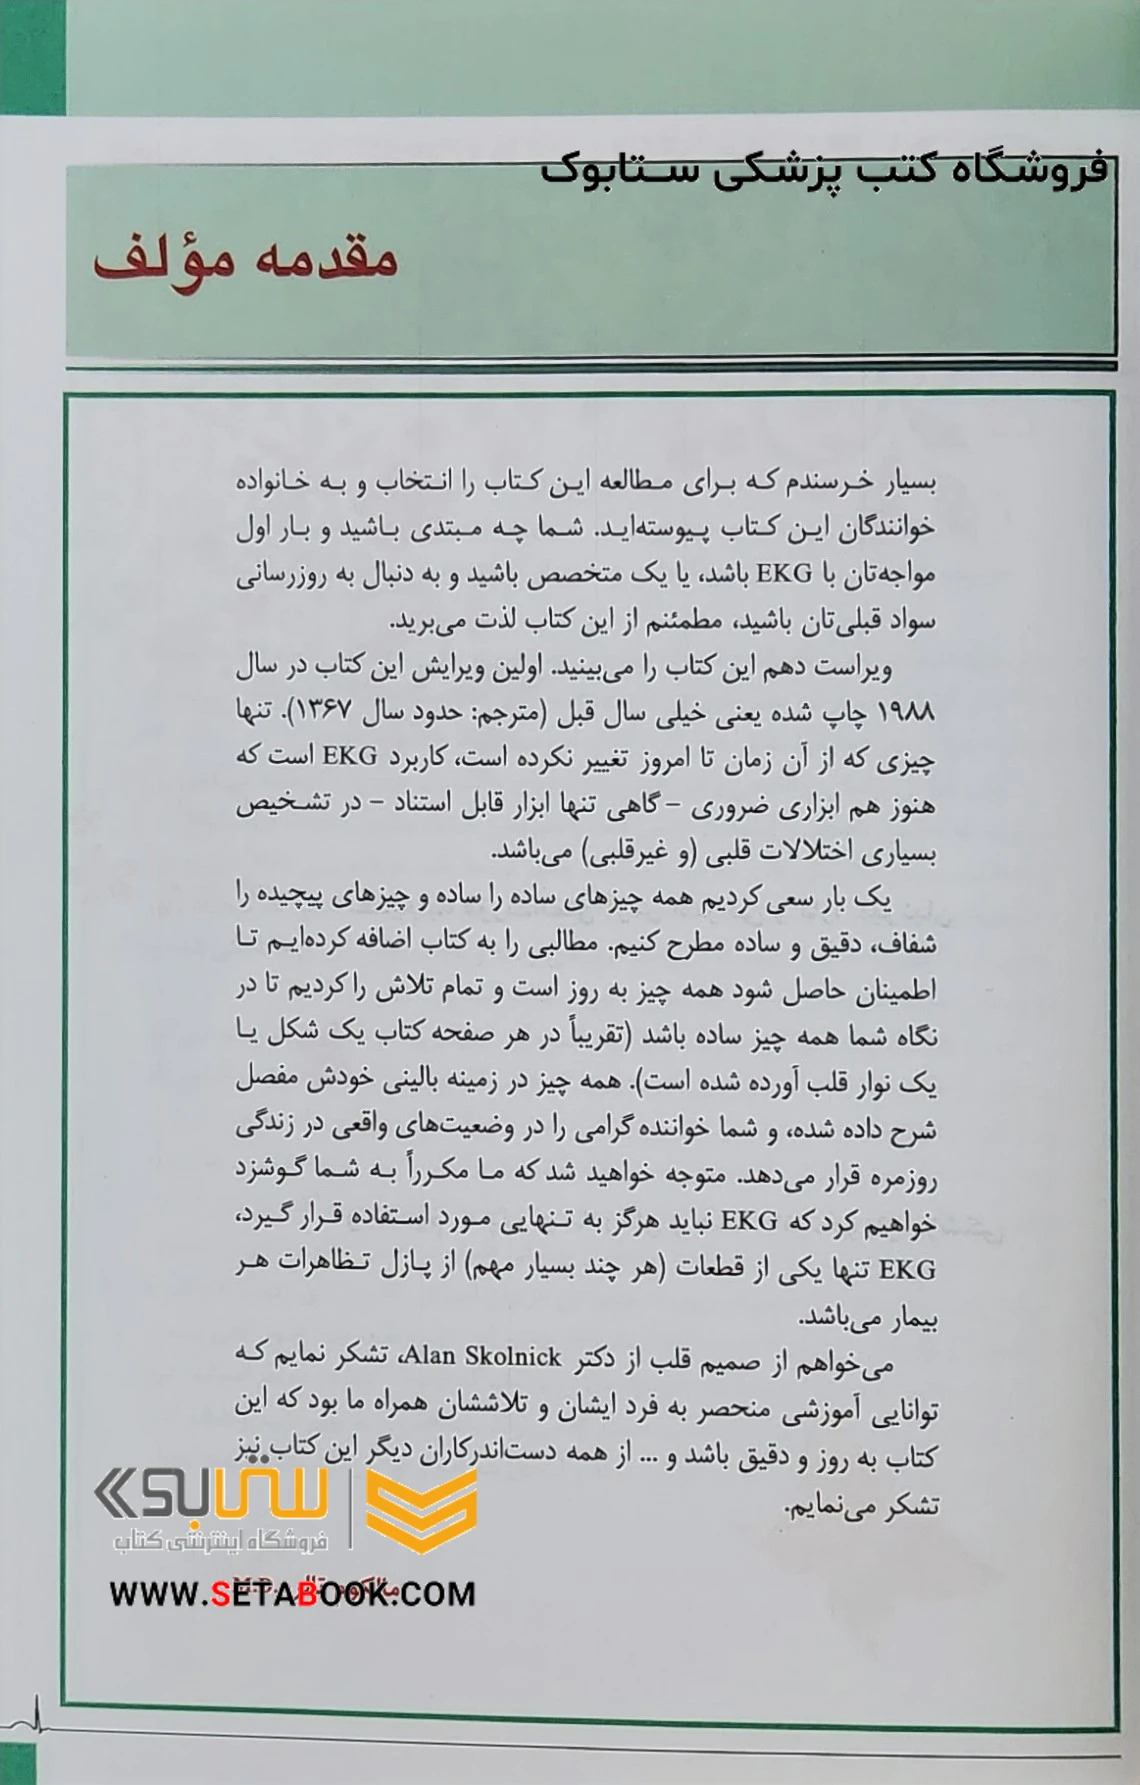 فروشگاه کتب پزشکی ستابوک
مقدمه مؤلف
بسیار خرسندم که برای مطالعه این کتاب را انتخاب و به خانواده
خوانندگان این کتاب پیوسته‌اید. شما چه مبتدی باشید و بار اول
مواجه‌تان با EKG باشد، یا یک متخصص باشید و به دنبال به روزرسانی
سواد قبلی‌تان باشید، مطمئنم از این کتاب لذت می‌برید.
ویراست دهم این کتاب را می‌بینید. اولین ویرایش این کتاب در سال
۱۹۸۸ چاپ شده یعنی خیلی سال قبل (مترجم: حدود سال ۱۳۶۷). تنها
چیزی که از آن زمان تا امروز تغییر نکرده است، کاربرد EKG است که
هنوز هم ابزاری ضروری – گاهی تنها ابزار قابل استناد – در تشخیص
بسیاری اختلالات قلبی (و غیرقلبی) می‌باشد.
یک بار سعی کردیم همه چیزهای ساده را ساده و چیزهای پیچیده را
شفاف، دقیق و ساده مطرح کنیم. مطالبی را به کتاب اضافه کرده‌ایم تا
اطمینان حاصل شود همه چیز به روز است و تمام تلاش را کردیم تا در
نگاه شما همه چیز ساده باشد (تقریباً در هر صفحه کتاب یک شکل یا
یک نوار قلب آورده شده است). همه چیز در زمینه بالینی خودش مفصل
شرح داده شده، و شما خواننده گرامی را در وضعیت‌های واقعی در زندگی
روزمره قرار می‌دهد. متوجه خواهید شد که ما مکرراً به شما گوشزد
خواهیم کرد که EKG نباید هرگز به تنهایی مورد استفاده قرار گیرد،
EKG تنها یکی از قطعات (هر چند بسیار مهم) از پازل تظاهرات هر
بیمار می‌باشد.
می‌خواهم از صمیم قلب از دکتر Alan Skolnick، تشکر نمایم که
توانایی آموزشی منحصر به فرد ایشان و تلاششان همراه ما بود که این
کتاب به روز و دقیق باشد و ... از همه دست‌اندرکاران دیگر این کتاب نیز
تشکر می‌نمایم.
ستابوک
فروشگاه اینترنتی کتاب
WWW.SETABOOK.COM